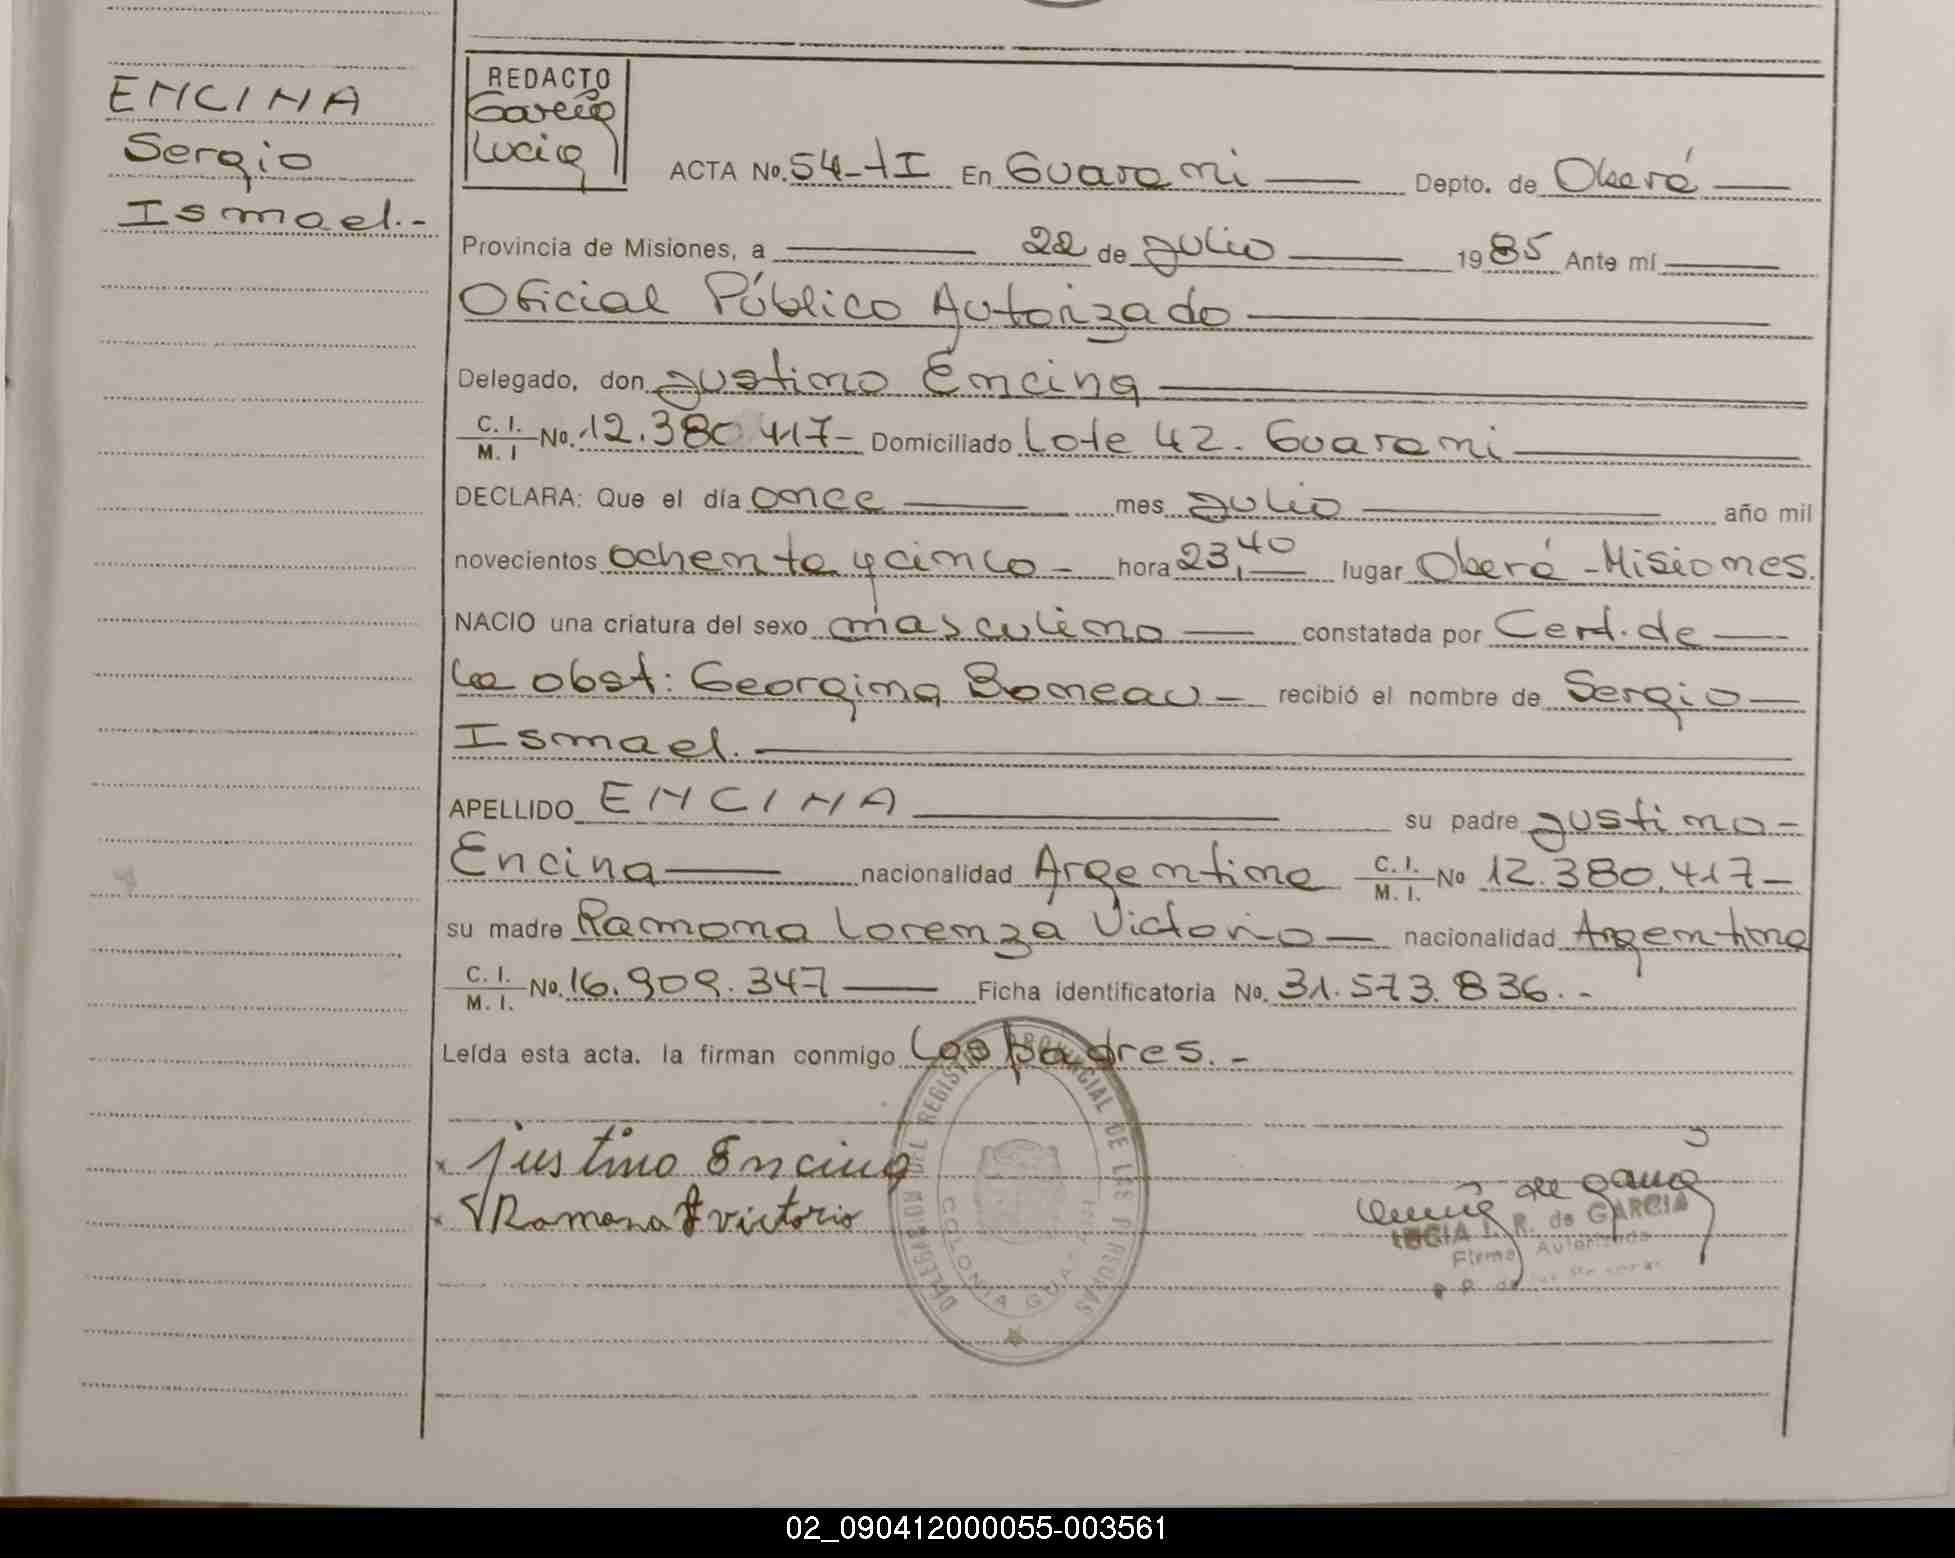 ENCINA
Sergio
Ismael.-
REDACTO
García
Lucia
ACTA No. 54-tI En Guarani Depto. de Oberá
Provincia de Misiones, a 22 de Julio 1985 Ante mí
Oficial Público Autorizado
Delegado, don Justino Encina
C. I. / M. I No. 12.380.417- Domiciliado Lote 42. Guarani
DECLARA: Que el día once mes Julio año mil
novecientos ochenta y cinco - hora 23,40 lugar Oberá - Misiones.
NACIO una criatura del sexo masculino constatada por Cert. de
la obst: Georgina Boneau - recibió el nombre de Sergio
Ismael.
APELLIDO ENCINA su padre Justino-
Encina nacionalidad Argentina C. I. / M. I. No 12.380.417-
su madre Ramona Lorenza Victorio nacionalidad Argentina
C. I. / M. I. No. 16.909.347 Ficha identificatoria No. 31.573.836.-
Leída esta acta. la firman conmigo Los padres.-
x Justino Encina
x Ramona L victorio
DELEGACION DEL REGISTRO PROVINCIAL DE LAS PERSONAS
COLONIA GUARANI
LUCIA I. R. de GARCIA
Firma Autorizada
02_090412000055-003561